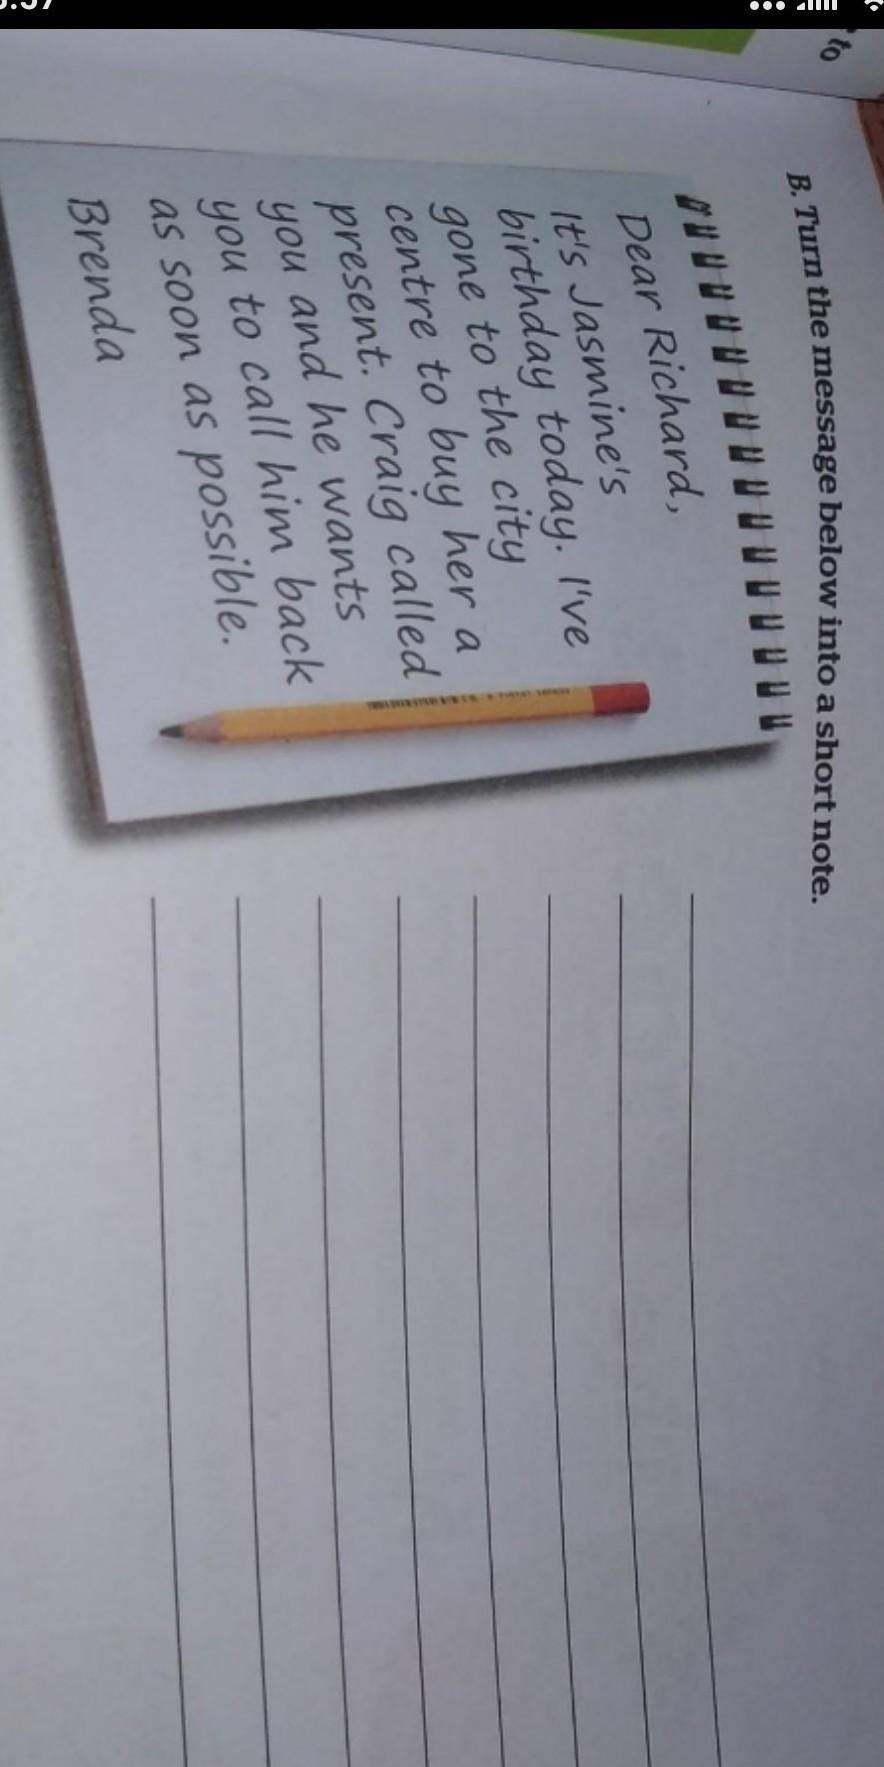 to
B. Turn the message below into a short note.
Dear Richard,
It's Jasmine's
birthday today. I've
gone to the city
centre to buy her a
present. Craig called
you and he wants
you to call him back
as soon as possible.
Brenda